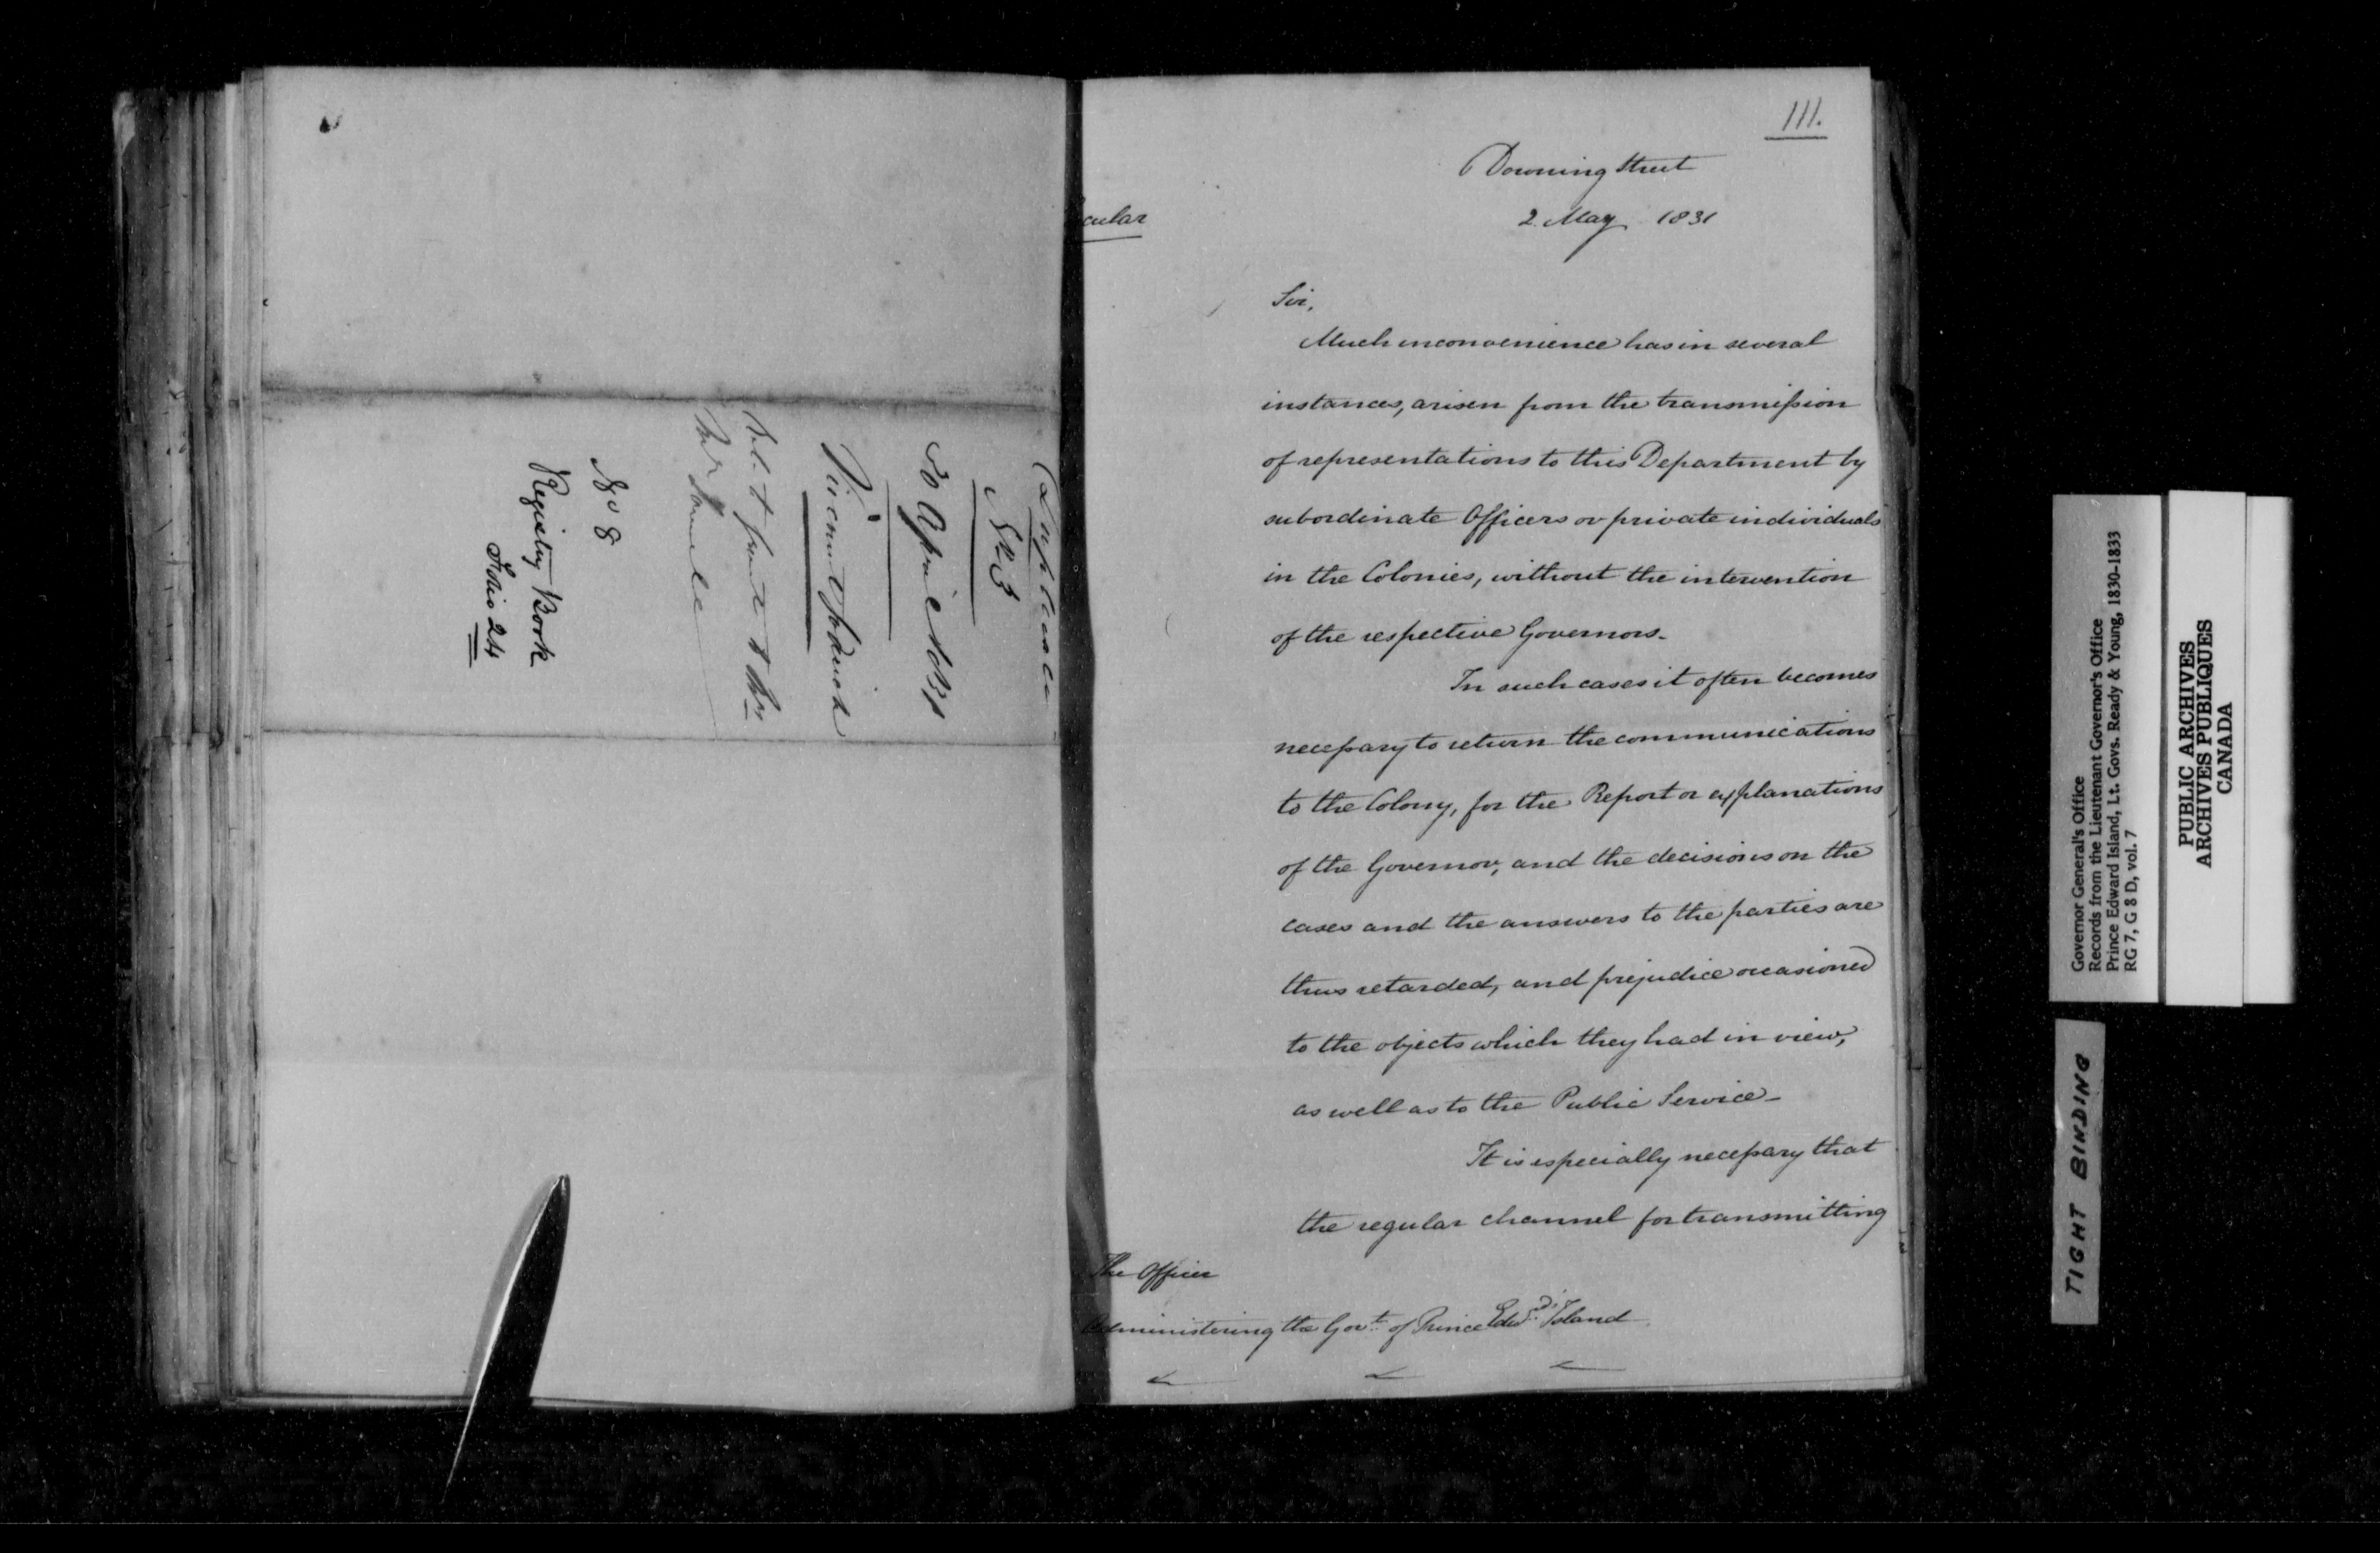 No 3
30 April 1831
Viscount Goderich
No 8
Registry Book
Folio 24
111.
Downing Street
cular
2 May 1831
Sir,
Much inconvenience has in several
instances, arisen from the transmission
of representations to this Department by
subordinate Officers or private individuals
in the Colonies, without the intervention
of the respective Governors.
In such cases it often becomes
necessary to return the communications
to the Colony, for the Report or explanations
of the Governor, and the decisions on the
cases and the answers to the parties are
thus retarded, and prejudice occasioned
to the objects which they had in view,
as well as to the Public Service.
It is especially necessary that
the regular channel for transmitting
The Officer
Administering the Govt. of Prince Edwd's Island
Governor General's Office
Records from the Lieutenant Governor's Office
Prince Edward Island, Lt. Govs. Ready & Young, 1830-1833
RG 7, G 8 D, vol. 7
PUBLIC ARCHIVES
ARCHIVES PUBLIQUES
CANADA
TIGHT BINDING